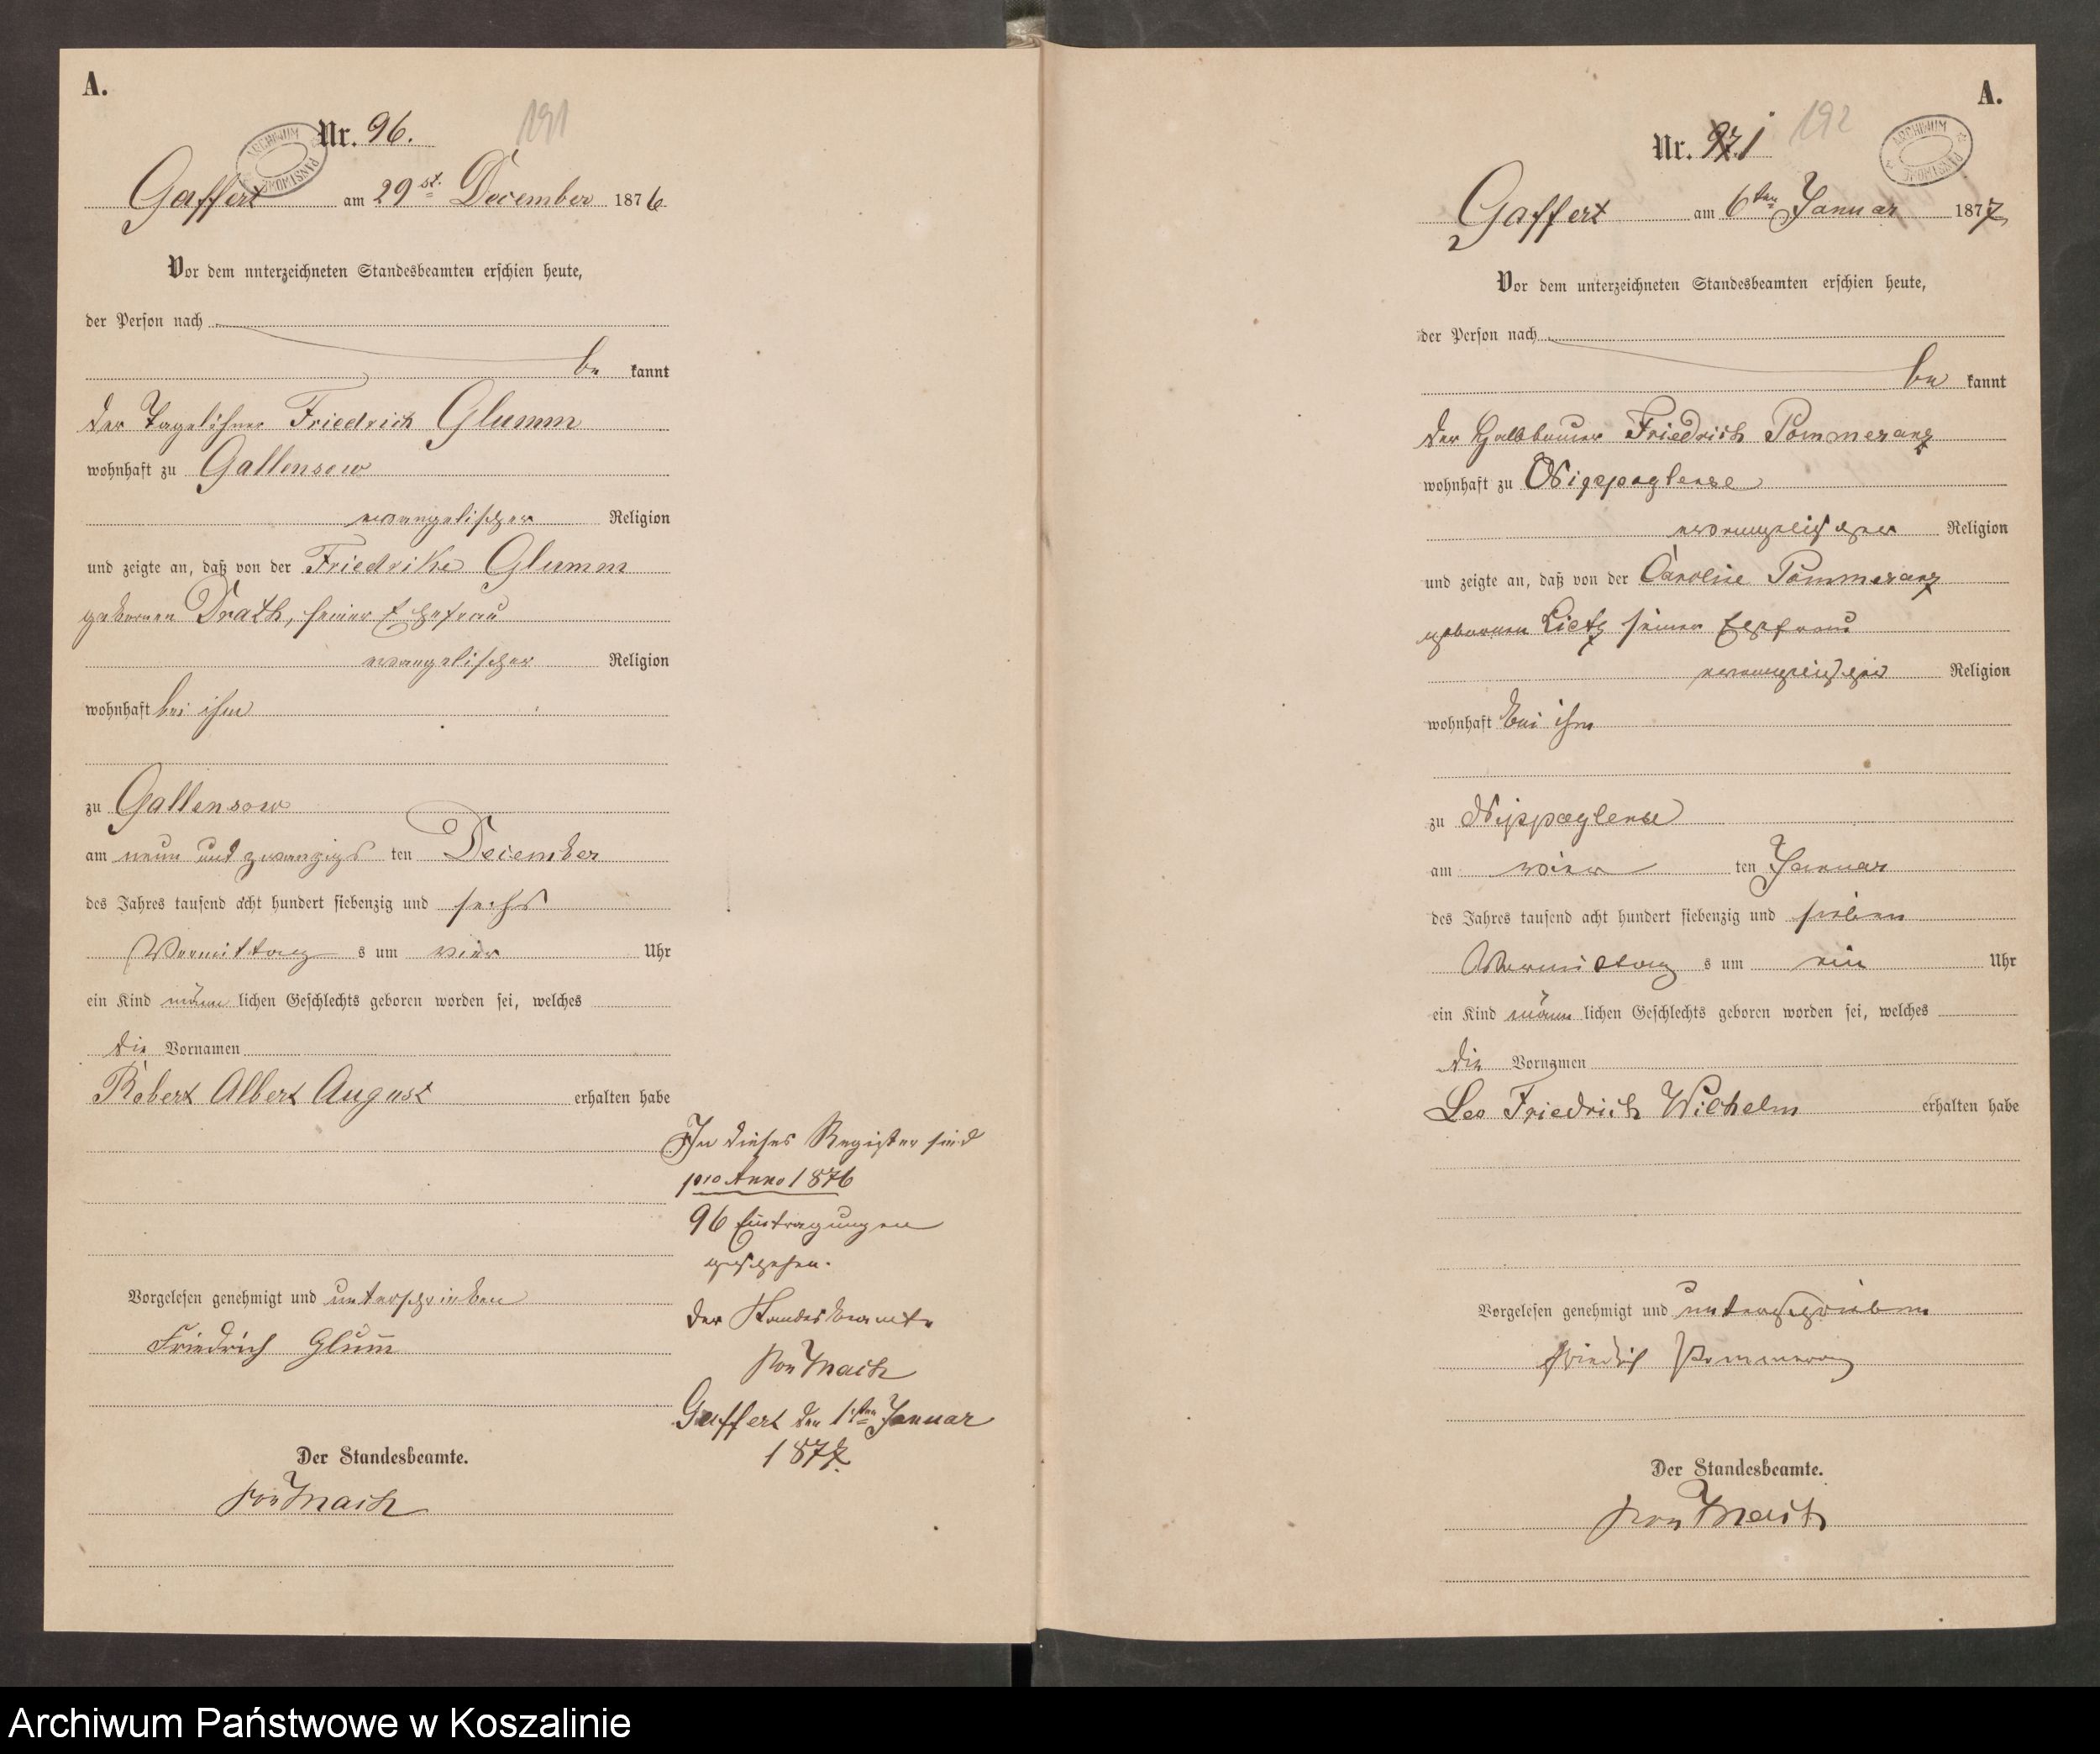 A.
191
Nr. 96.
ARCHIWUM PAŃSTWOWE
Gaffert am 29st. December 1876
Vor dem unterzeichneten Standesbeamten erschien heute,
der Person nach
be kannt
der Tagelöhner Friedrich Glumm
wohnhaft zu Gallensow
evangelischer Religion
und zeigte an, daß von der Friedrike Glumm
gebornen Drath, seiner Ehefrau
evangelischer Religion
wohnhaft bei ihm
zu Gallensow
am neun und zwanzigs ten December
des Jahres tausend acht hundert siebenzig und sechs
Vormittag s um vier Uhr
ein Kind männ lichen Geschlechts geboren worden sei, welches
die Vornamen
Robert Albert August erhalten habe
Vorgelesen genehmigt und unterschrieben
Friedrich Glum̅
Der Standesbeamte.
von Mach
In dieses Register sind
pro Anno 1876
96 Eintragungen
geschehen.
Der Standesbeamte
von Mach
Gaffert den 1ten Januar
1877.
A.
192
Nr. 97. 1
ARCHIWUM PAŃSTWOWE
Gaffert am 6ten Januar 1877
Vor dem unterzeichneten Standesbeamten erschien heute,
der Person nach
be kannt
der Halbbauer Friedrich Pommeranz
wohnhaft zu Nippoglense
evangelischer Religion
und zeigte an, daß von der Caroline Pommeranz
gebornen Lietz seiner Ehefrau
evangelischer Religion
wohnhaft bei ihm
zu Nippoglense
am vier ten Januar
des Jahres tausend acht hundert siebenzig und sieben
Vormittag s um ein Uhr
ein Kind männ lichen Geschlechts geboren worden sei, welches
die Vornamen
Leo Friedrich Wilhelm erhalten habe
Vorgelesen genehmigt und unterschrieben
Friedrich Pommeranz
Der Standesbeamte.
von Mach
Archiwum Państwowe w Koszalinie